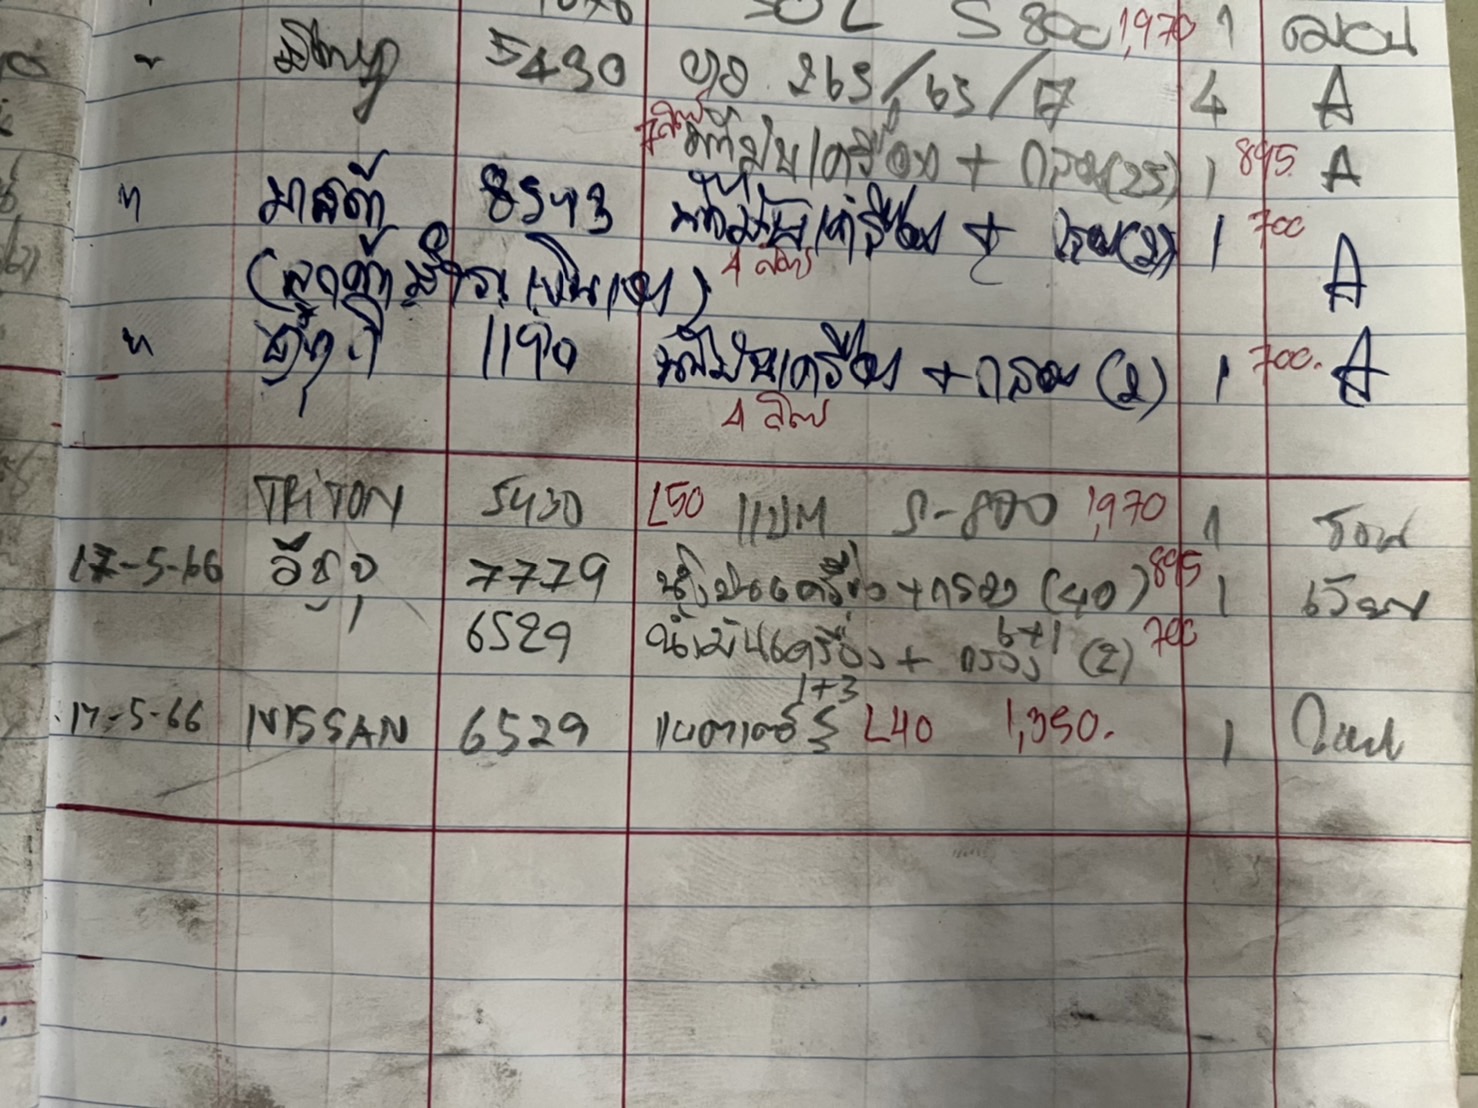 50L S 800 1,970 1
" 5430 ยาง 265/65/17 4 A
7ลิตร น้ำมันเครื่อง + กรอง(25) 1 895. A
" มาสด้า 8543 น้ำมันเครื่อง + กรอง(2) 1 700
(ลูกค้า เงินเอง) 4 ลิตร A
" 1190 น้ำมันเครื่อง + กรอง (2) 1 700. A
4 ลิตร
TRITON 5430 L50 แบต S-800 1,970 1
17-5-66 อีซูซุ 7779 น้ำมันเครื่อง+กรอง (40) 895 1
6+1
6529 น้ำมันเครื่อง + กรอง (2) 700
1+3
17-5-66 NISSAN 6529 แบตเตอรี่ L40 1,350. 1